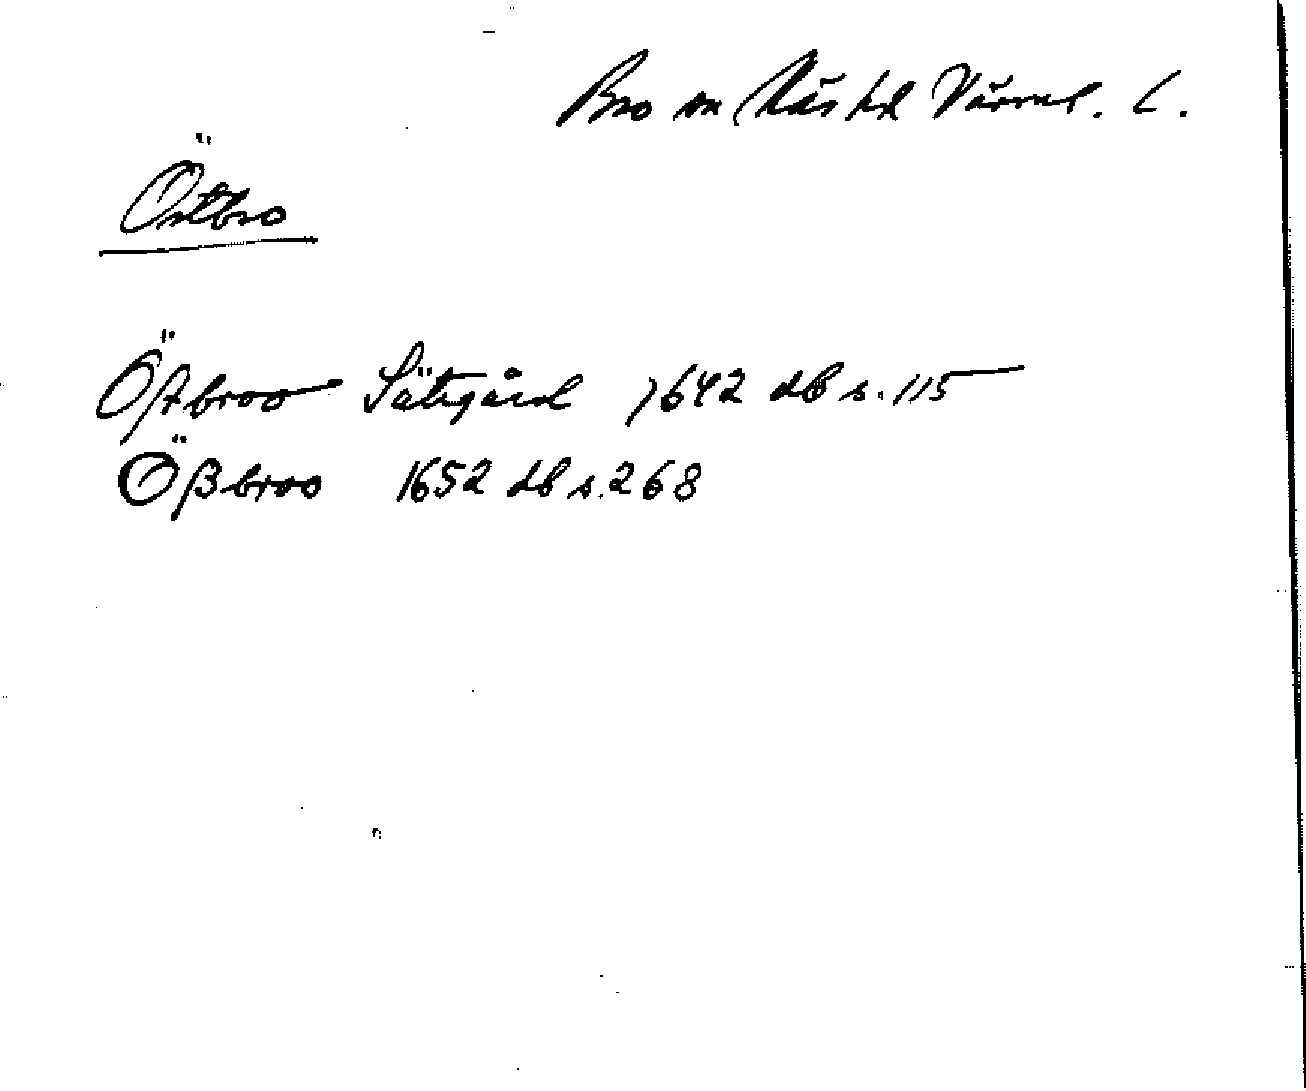 Bro sn Näs hd Värml. L.
Östbro
Östbroo Sätisgård 1642 db s. 115
Ößbroo 1652 db s. 268